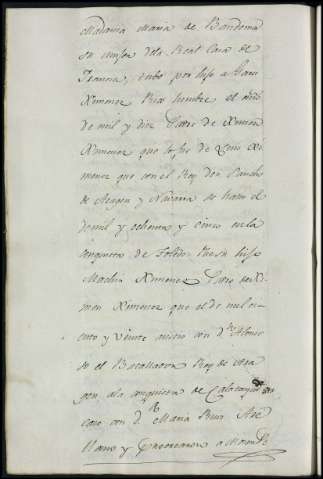 Madama Maria de Bandoma
su muger dela Real Casa de
Francia, tubo por hijo a
Ximenez Rico hombre el año
de mil y diez Padre de Ximen
Ximenez que lo fue de Ximenez
que con el Rey Don Sancho
de Aragon y Navarra se hallo el
de mil y ochenta y cinco en la
conquista de Toledo. Fue su hijo
Ximenez Padre de
Ximenez que el de mil ci
ento y veinte murio con Dn Alonso
el Batallador Rey de Ara
gon, ala conquista de Calatayud
caso con Da Maria Ruiz
llano y Procrearon a